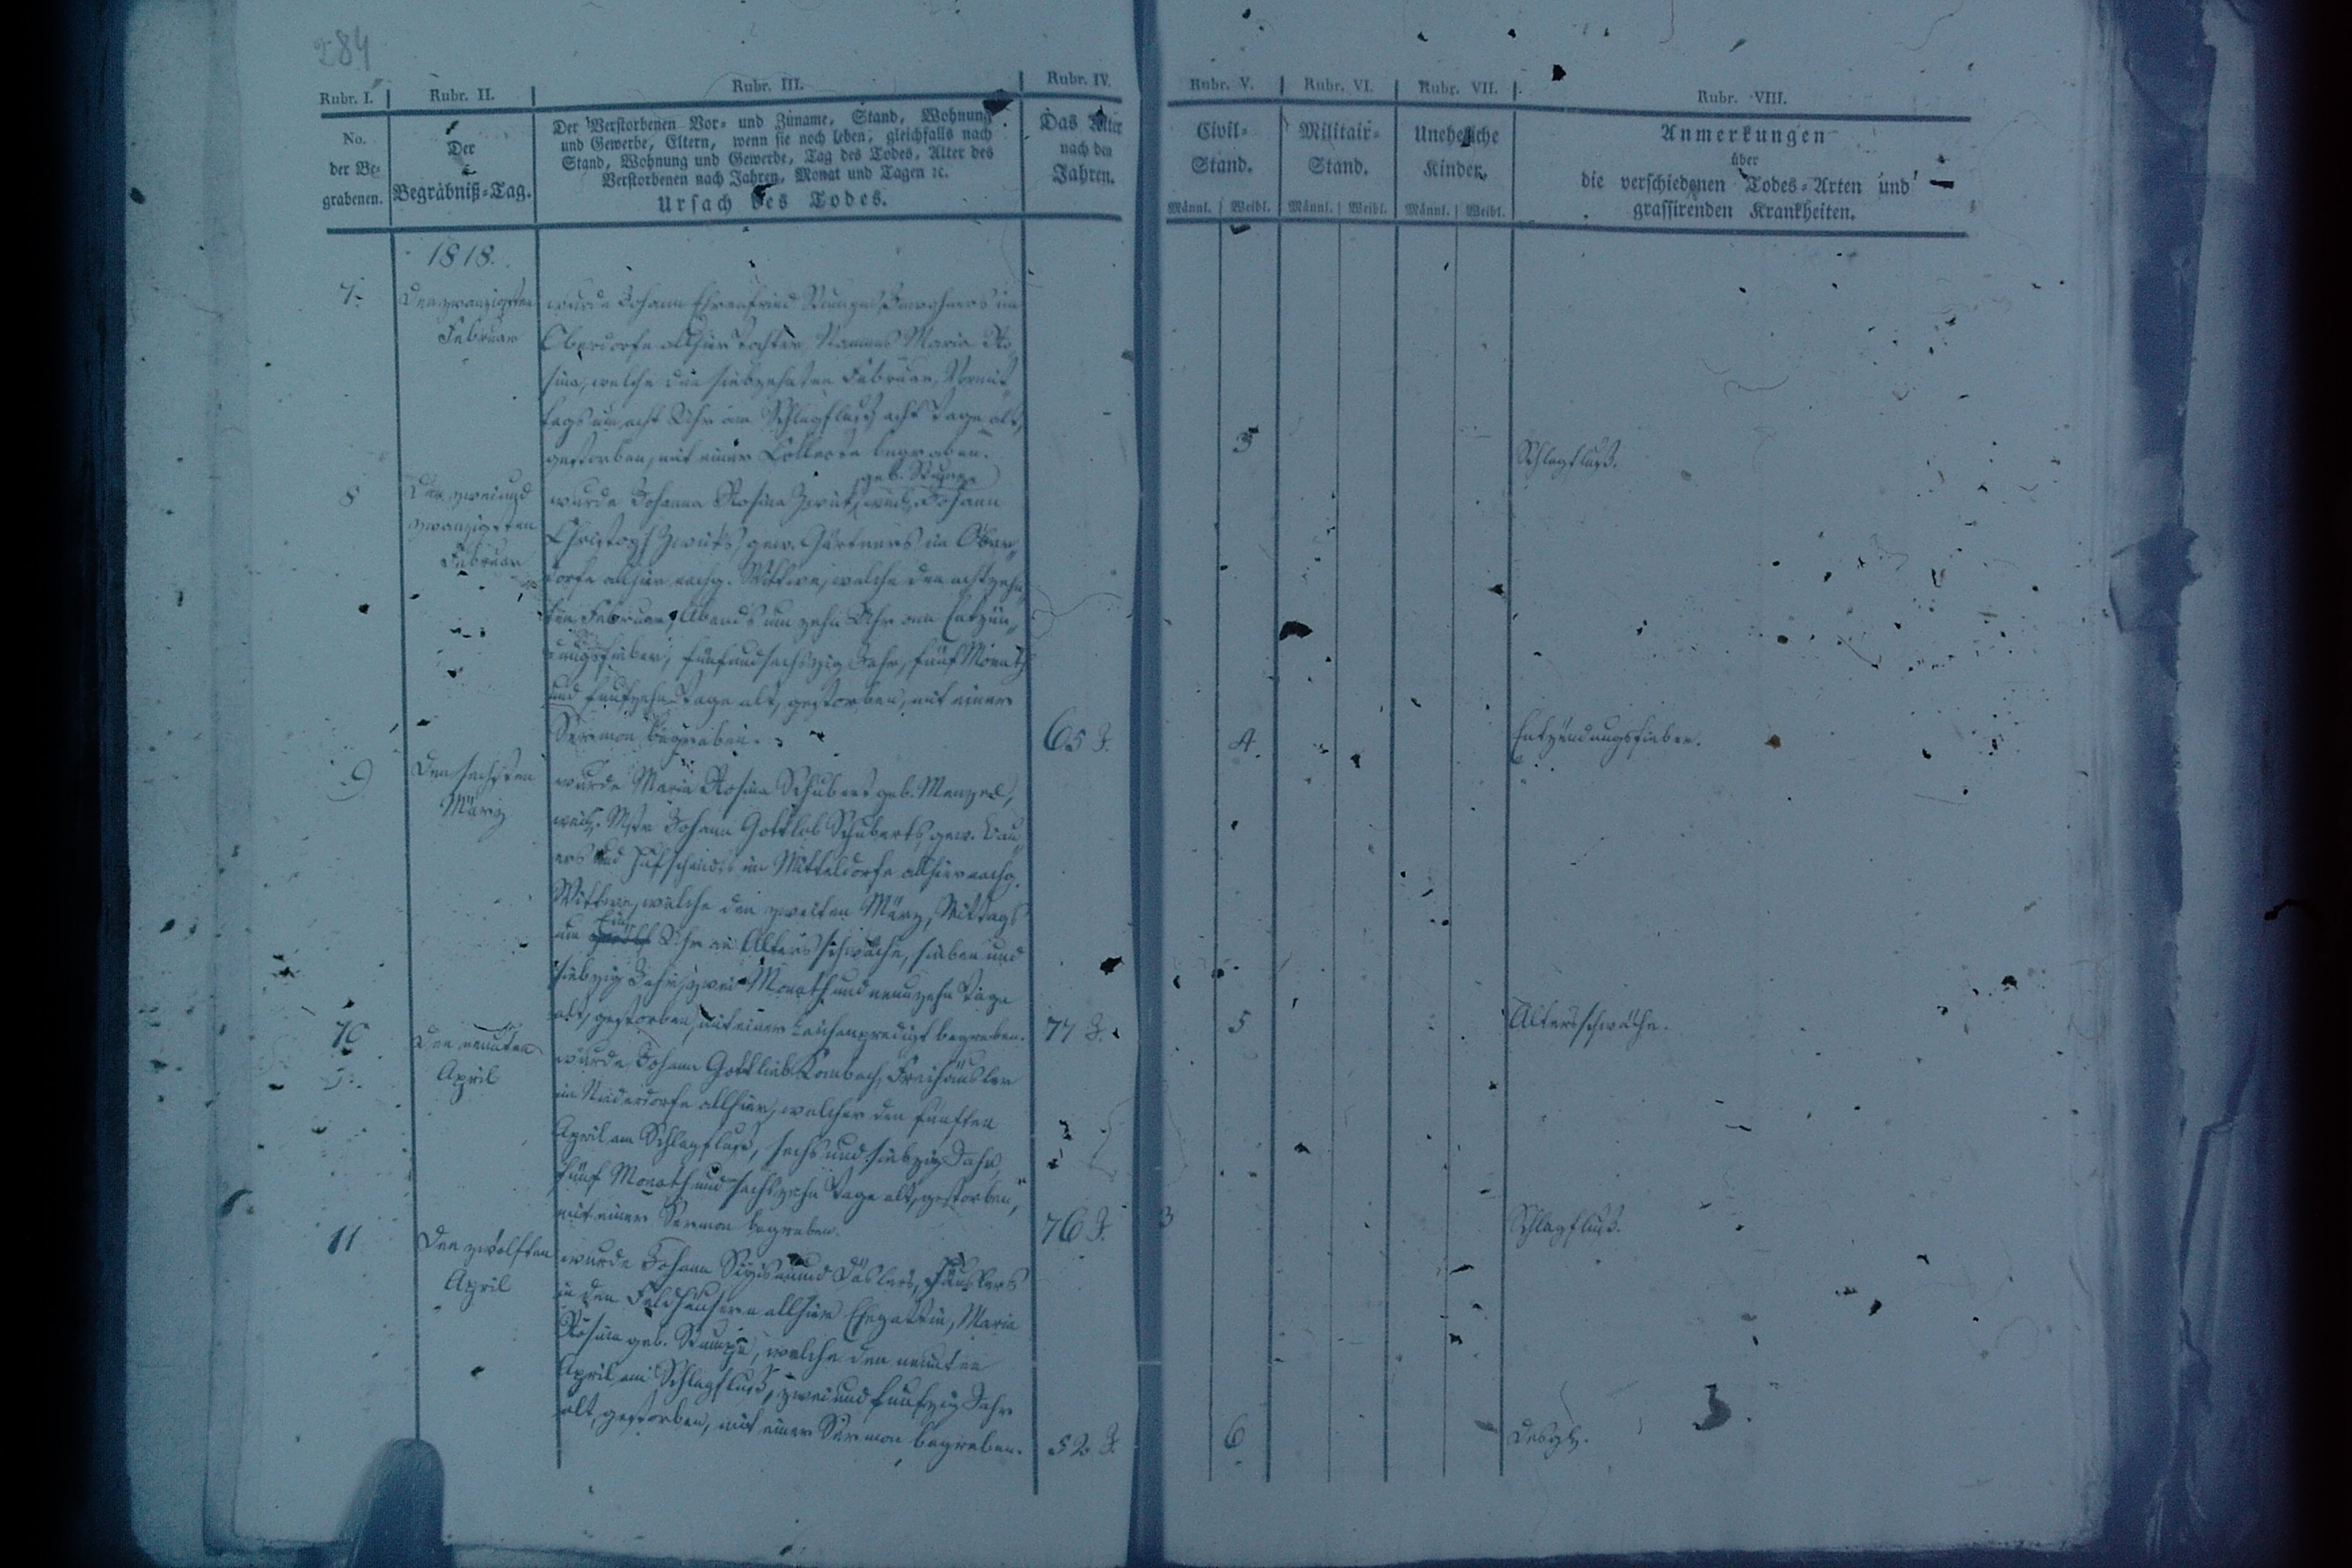 284
Rubr. I. Rubr. II. Rubr. III. Rubr. IV. Rubr. V. Rubr. VI. Rubr. VII. Rubr. VIII.
No.
der Be-
grabenen.
Der
Begräbniß-Tag.
Der Verstorbenen Vor- und Zuname, Stand, Wohnung
und Gewerbe, Eltern, wenn sie noch leben, gleichfalls nach
Stand, Wohnung und Gewerbe, Tag des Todes, Alter des
Verstorbenen nach Jahren, Monat und Tagen ꝛc.
Ursach des Todes.
Das Alter
nach den
Jahren.
Civil-
Stand.
Männl. Weibl.
Militair-
Stand.
Männl. Weibl.
Uneheliche
Kinder.
Männl. Weibl.
Anmerkungen
über
die verschiedenen Todes-Arten und
grassirenden Krankheiten.
1818.
7.
Den zwanzigsten
Februar
wurde Johann Ehrenfried Inwohners im
Oberdorfe allhier Tochter, Namens Maria Ro
sina, welche den siebzehnten Februar, Vormit
tags um acht Uhr am Schlagfluß, acht Tage alt,
gestorben, mit einer Collecte begraben.
3
Schlagfluß.
8
Den zwei und
zwanzigsten
Februar
geb.
wurde Johanna Rosina weil. Johann
Christoph gew. Gärtners im Ober„
dorfe allhier nachg. Wittwe, welche den achtzehn„
ten Februar, Abends um zehn Uhr am Entzün„
dungsfieber, fünf und sechszig Jahr, fünf Monath
und fünfzehn Tage alt, gestorben, mit einer
Sermon begraben.
65 J.
4
Entzündungsfieber.
9
Den sechsten
März
wurde Maria Rosina Schubert geb. Menzel,
weil. Mstr Johann Gottlob Schuberts, gew. Bau„
ers und Hufschmids im Mitteldorfe allhier nachg.
Wittwe, welche den zweiten März, Mittags
um Uhr an Altersschwäche, sieben und
siebzig Jahr, zwei Monath und neunzehn Tage
alt, gestorben, mit einer Leichenpredigt begraben.
77 J.
5
Altersschwäche.
10
Den neunten
April
wurde Johann Gottlieb Freihäusler
im Niederdorfe allhier, welcher den fünften
April am Schlagfluß, sechs und siebzig Jahr,
fünf Monath und sechszehn Tage alt, gestorben,
mit einer Sermon begraben.
76 J.
3
Schlagfluß.
11
Den zwölften
April
wurde Johann Sigismund Häuslers
in den Feldhäusern allhier Ehegattin, Maria
Rosina geb. welche den neunten
April am Schlagfluß, zwei und fünfzig Jahr
alt, gestorben, mit einer Sermon begraben.
52. J.
6
desgl.